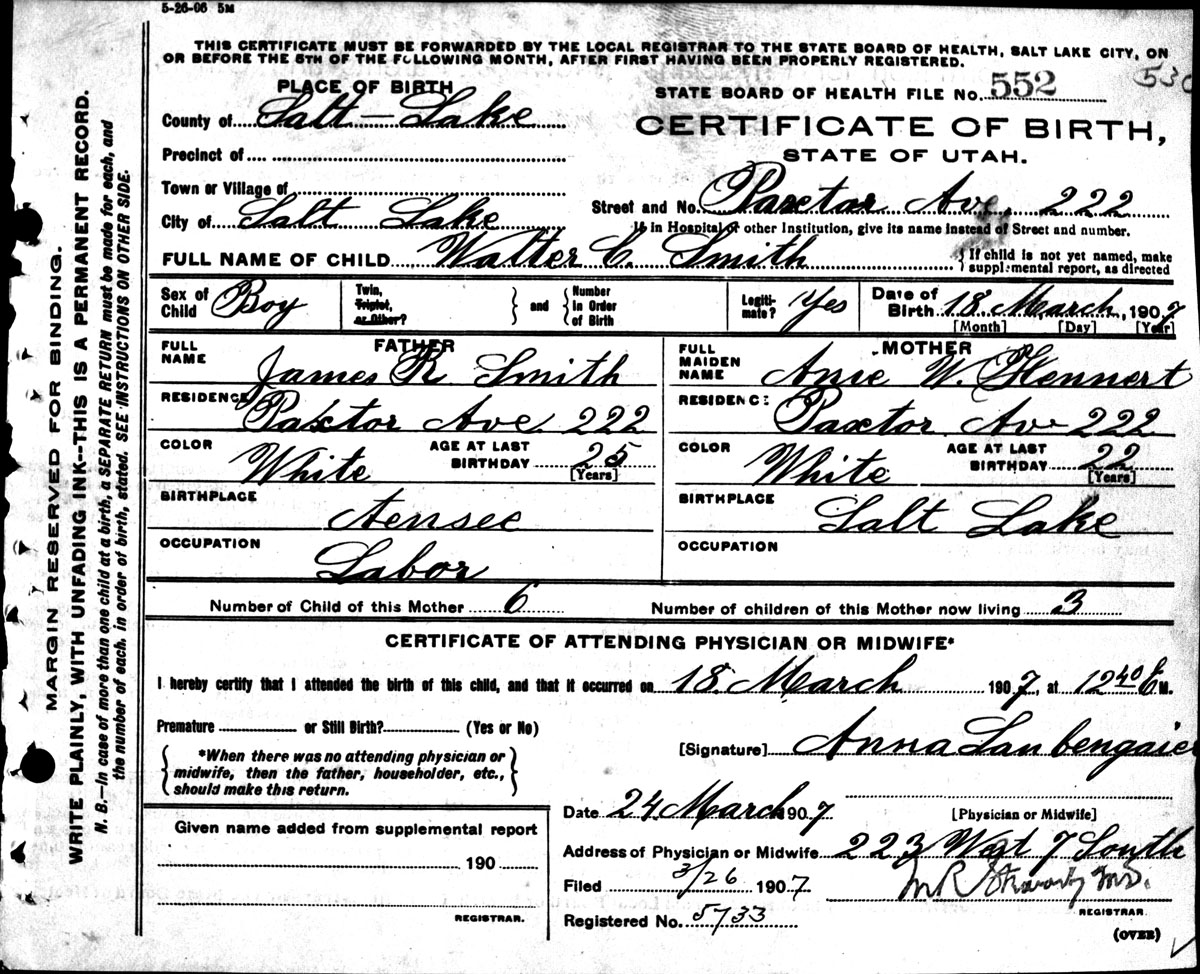 5-26-06 5M
THIS CERTIFICATE MUST BE FORWARDED BY THE LOCAL REGISTRAR TO THE STATE BOARD OF HEALTH, SALT LAKE CITY, ON
OR BEFORE THE 5TH OF THE FOLLOWING MONTH, AFTER FIRST HAVING BEEN PROPERLY REGISTERED.
PLACE OF BIRTH
STATE BOARD OF HEALTH FILE No. 552
County of Salt-Lake
CERTIFICATE OF BIRTH,
Precinct of
STATE OF UTAH.
Town or Village of
City of Salt Lake
Street and No. Paxtor Ave. 222
If in Hospital or other Institution, give its name instead of Street and number.
FULL NAME OF CHILD Walter C. Smith
{ If child is not yet named, make
supplemental report, as directed
Sex of Child Boy
Twin, Triplet, or Other? } and { Number in Order of Birth
Legitimate? Yes
Date of Birth 18 March, 1907
[Month] [Day] [Year]
FATHER
FULL NAME James R. Smith
RESIDENCE Paxtor Ave 222
COLOR White
AGE AT LAST BIRTHDAY 25
[Years]
BIRTHPLACE
OCCUPATION Labor
MOTHER
FULL MAIDEN NAME Anie W.
RESIDENCE Paxtor Ave 222
COLOR White
AGE AT LAST BIRTHDAY 22
[Years]
BIRTHPLACE Salt Lake
OCCUPATION
Number of Child of this Mother 6
Number of children of this Mother now living 3
CERTIFICATE OF ATTENDING PHYSICIAN OR MIDWIFE*
I hereby certify that I attended the birth of this child, and that it occurred on 18. March 1907, at 12 40 M.
Premature or Still Birth? (Yes or No)
{ *When there was no attending physician or
midwife, then the father, householder, etc.,
should make this return. }
[Signature] Anna
Date 24 March 1907
[Physician or Midwife]
Given name added from supplemental report
190
REGISTRAR.
Address of Physician or Midwife 223 West 7 South
Filed 3/26 1907
M.D.
REGISTRAR.
Registered No. 5733
(OVER)
MARGIN RESERVED FOR BINDING.
WRITE PLAINLY, WITH UNFADING INK--THIS IS A PERMANENT RECORD.
N. B.—In case of more than one child at a birth, a SEPARATE RETURN must be made for each, and
the number of each, in order of birth, stated. SEE INSTRUCTIONS ON OTHER SIDE.